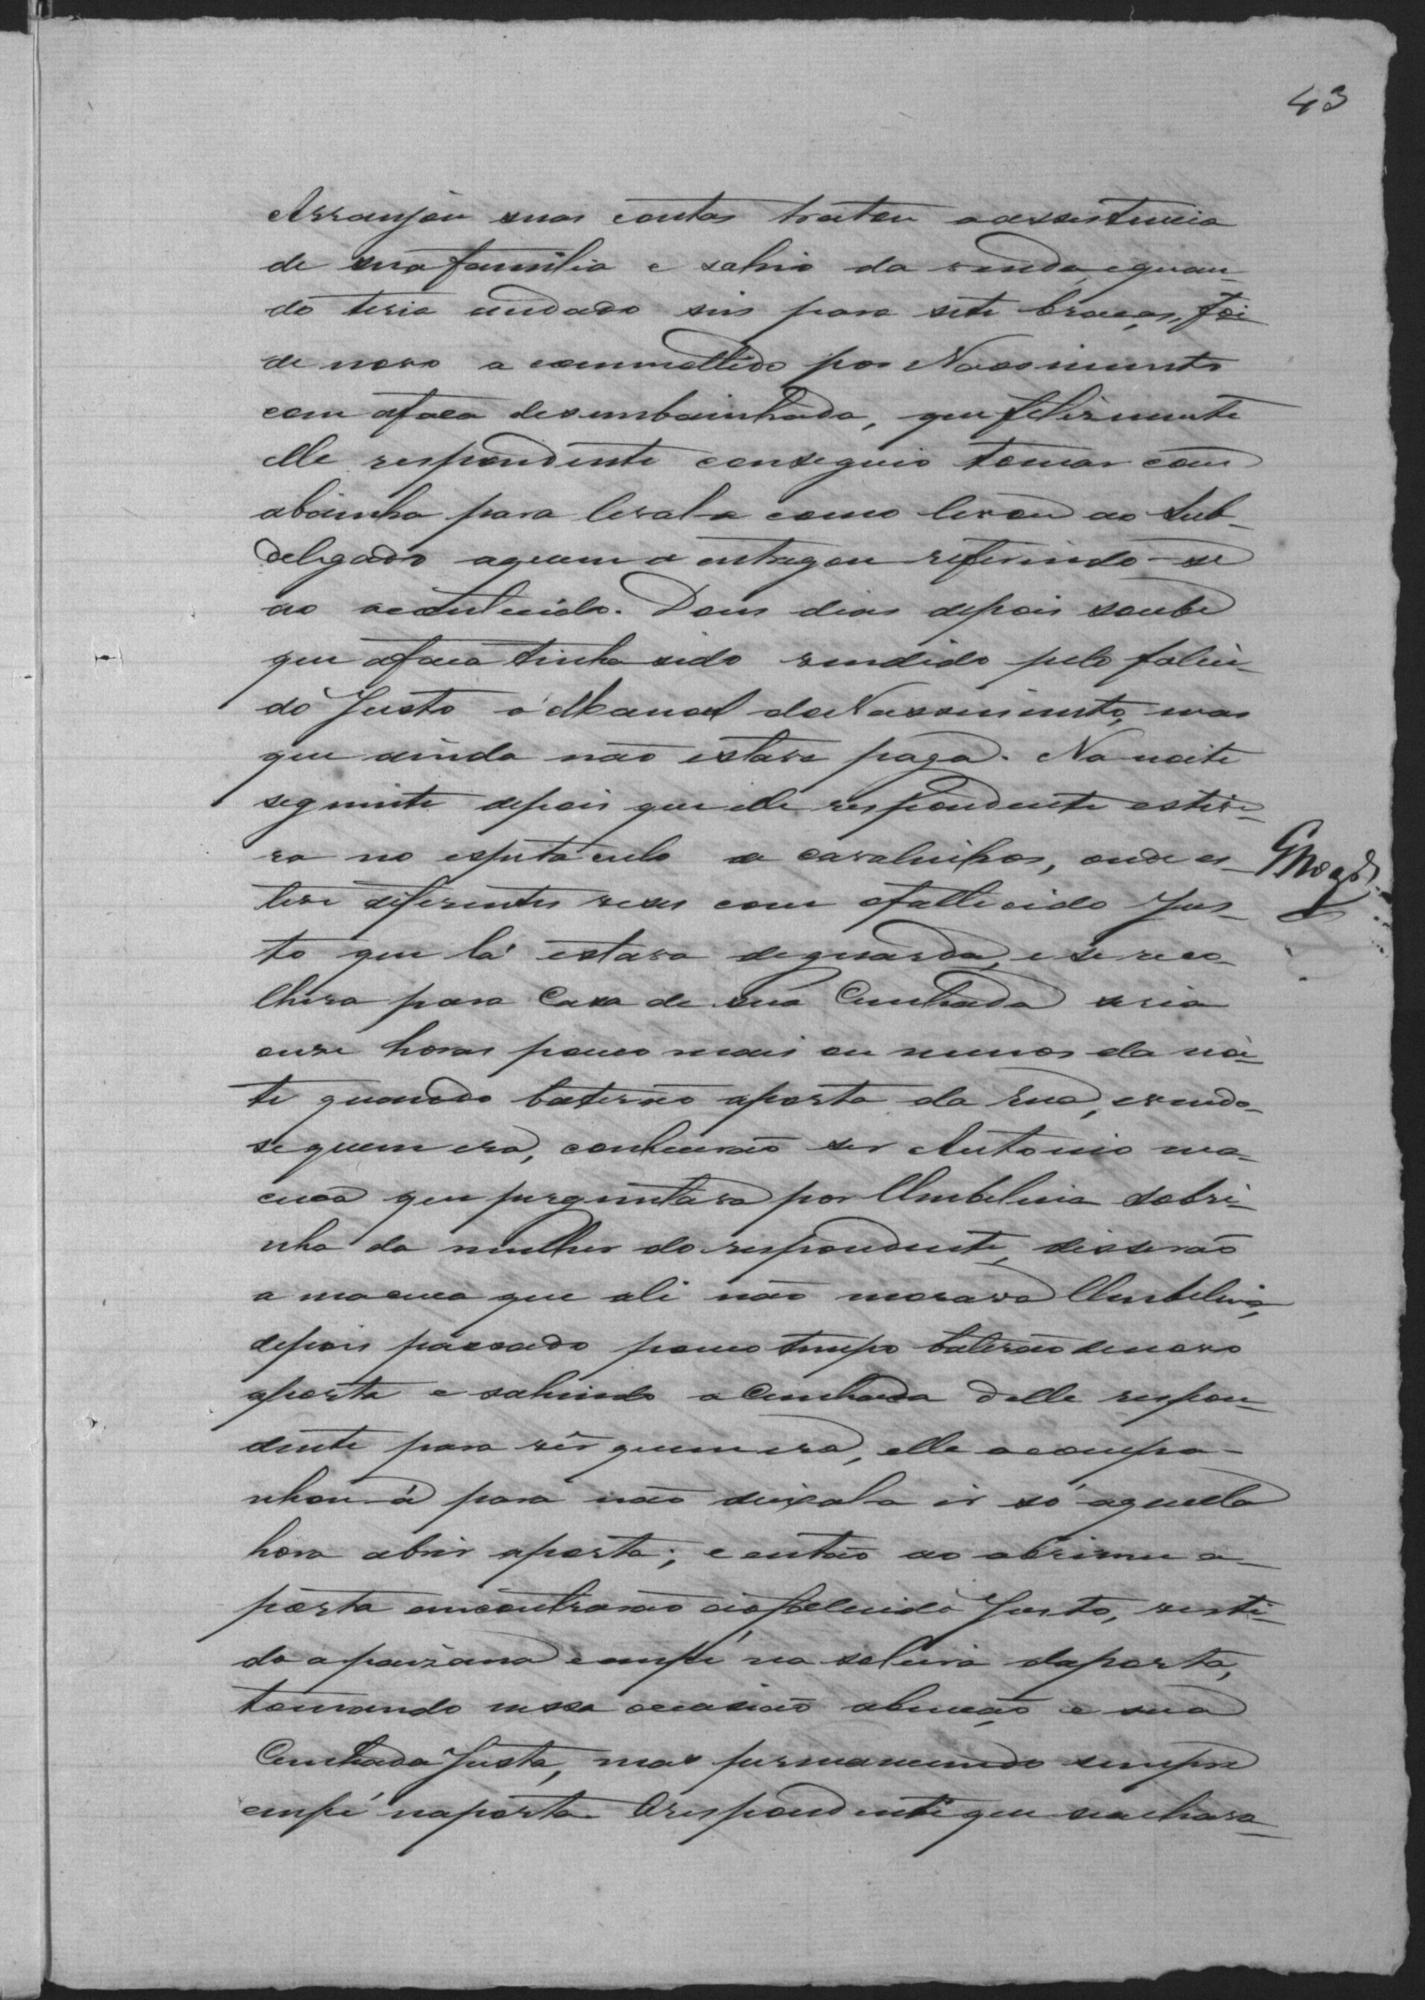 43
Arranjou suas contas tratou a assistencia
de sua familia e sahio da venda, e quan-
do teria andado seis para sete braças, foi
de novo a commettido por Nascimento
com afaca desembainhada, que felismente
elle respondente conseguio tomar com
abainha para leval-a como levou ao Sub-
delegado aquem a entregou referindo-se
ao acontecido. Dous dias depois soube
que afaca tinha sido vendida pelo faleci-
do Justo á Manoel do Nascimento, mas
que ainda não estava paga. Na noite
seguinte depois que elle respondente estive-
ra no espetaculo a cavalinhos, onde es-
teve diferentes vezes com ofallecido Jus-
to que lá estava deguarda, e se reco-
lhera para Casa de sua Cunhada seria
onze horas pouco mais ou menos da noi-
te quando baterão aporta da rua, e vendo-
se quem era, conhecerão ser Antonio ma-
cuca que perguntava por Umbelina sobri-
nha da mulher do respondente, disserão
a macuca que ali não morava Umbelina,
depois passado pouco tempo baterão denovo
aporta e sahindo a Cunhada delle respon-
dente para vêr quem era, elle acompa-
nhou-a para não deixala ir só aquella
hora abrir aporta; e então ao abrirem a
porta encontrarão ao falecido Justo, vesti-
do apaizana e empé na soleira daporta,
tomando nessa occasião abenção a sua
Cunhada Justa, mas permanecendo sempre
empé naporta. Orespondente que seachava